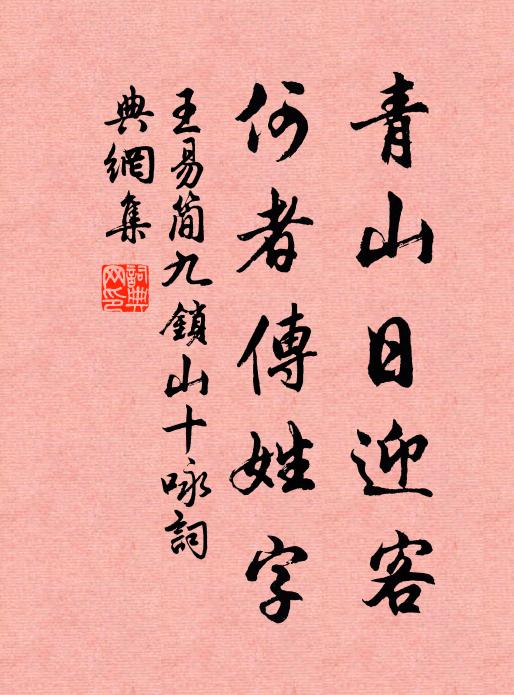 青山日迎客
何者傳姓字
王易简九鎖山十咏詞
典網集
詞典
网印